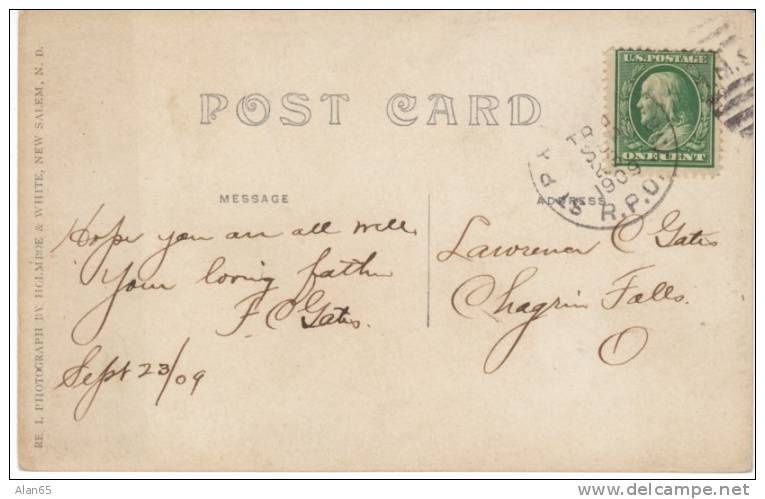 POST CARD
U.S. POSTAGE
ONE CENT
1909
R.P.O.
MESSAGE
ADDRESS
Hope you are all well
Your loving father
F C Gates.
Sept 23/09
Lawrence C Gates
Chagrin Falls.
O
RE. I. PHOTOGRAPH BY HOLMBOE & WHITE, NEW SALEM, N. D.
Alan65
delcampe.net